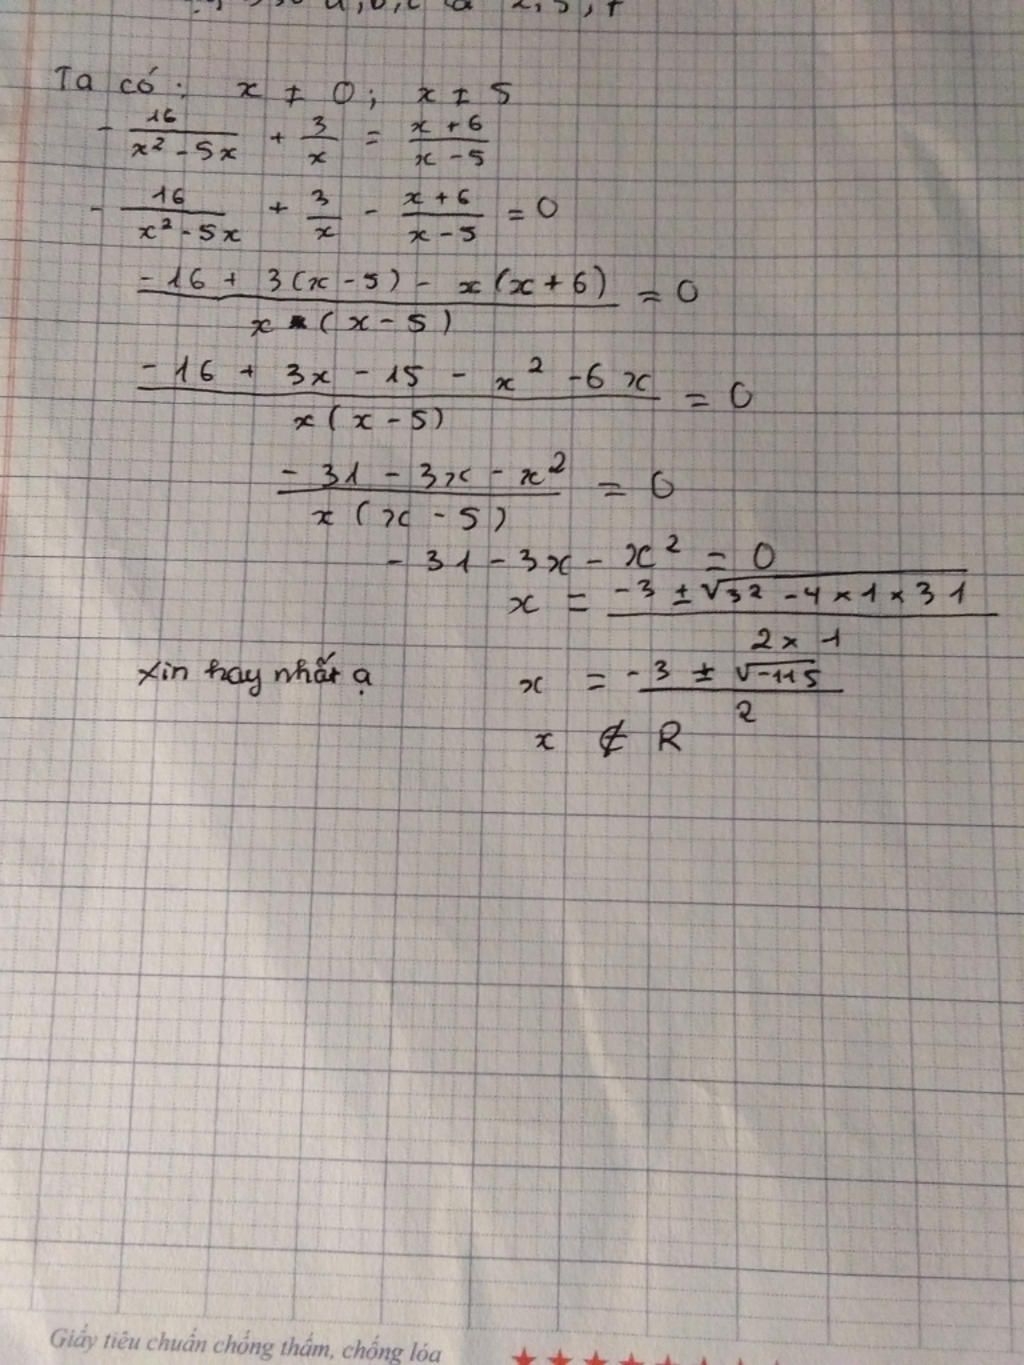 Ta có: x ≠ 0; x ≠ 5
- 16/(x² - 5x) + 3/x = (x + 6)/(x - 5)
- 16/(x² - 5x) + 3/x - (x + 6)/(x - 5) = 0
(-16 + 3(x - 5) - x(x + 6))/(x (x - 5)) = 0
(-16 + 3x - 15 - x² - 6x)/(x(x - 5)) = 0
(-31 - 3x - x²)/(x(x - 5)) = 0
-31 - 3x - x² = 0
x = (-3 ± √(3² - 4 × 1 × 31))/(2 × 1)
Xin hay nhất ạ
x = (-3 ± √-115)/2
x ∉ R
Giấy tiêu chuẩn chống thấm, chống lóa